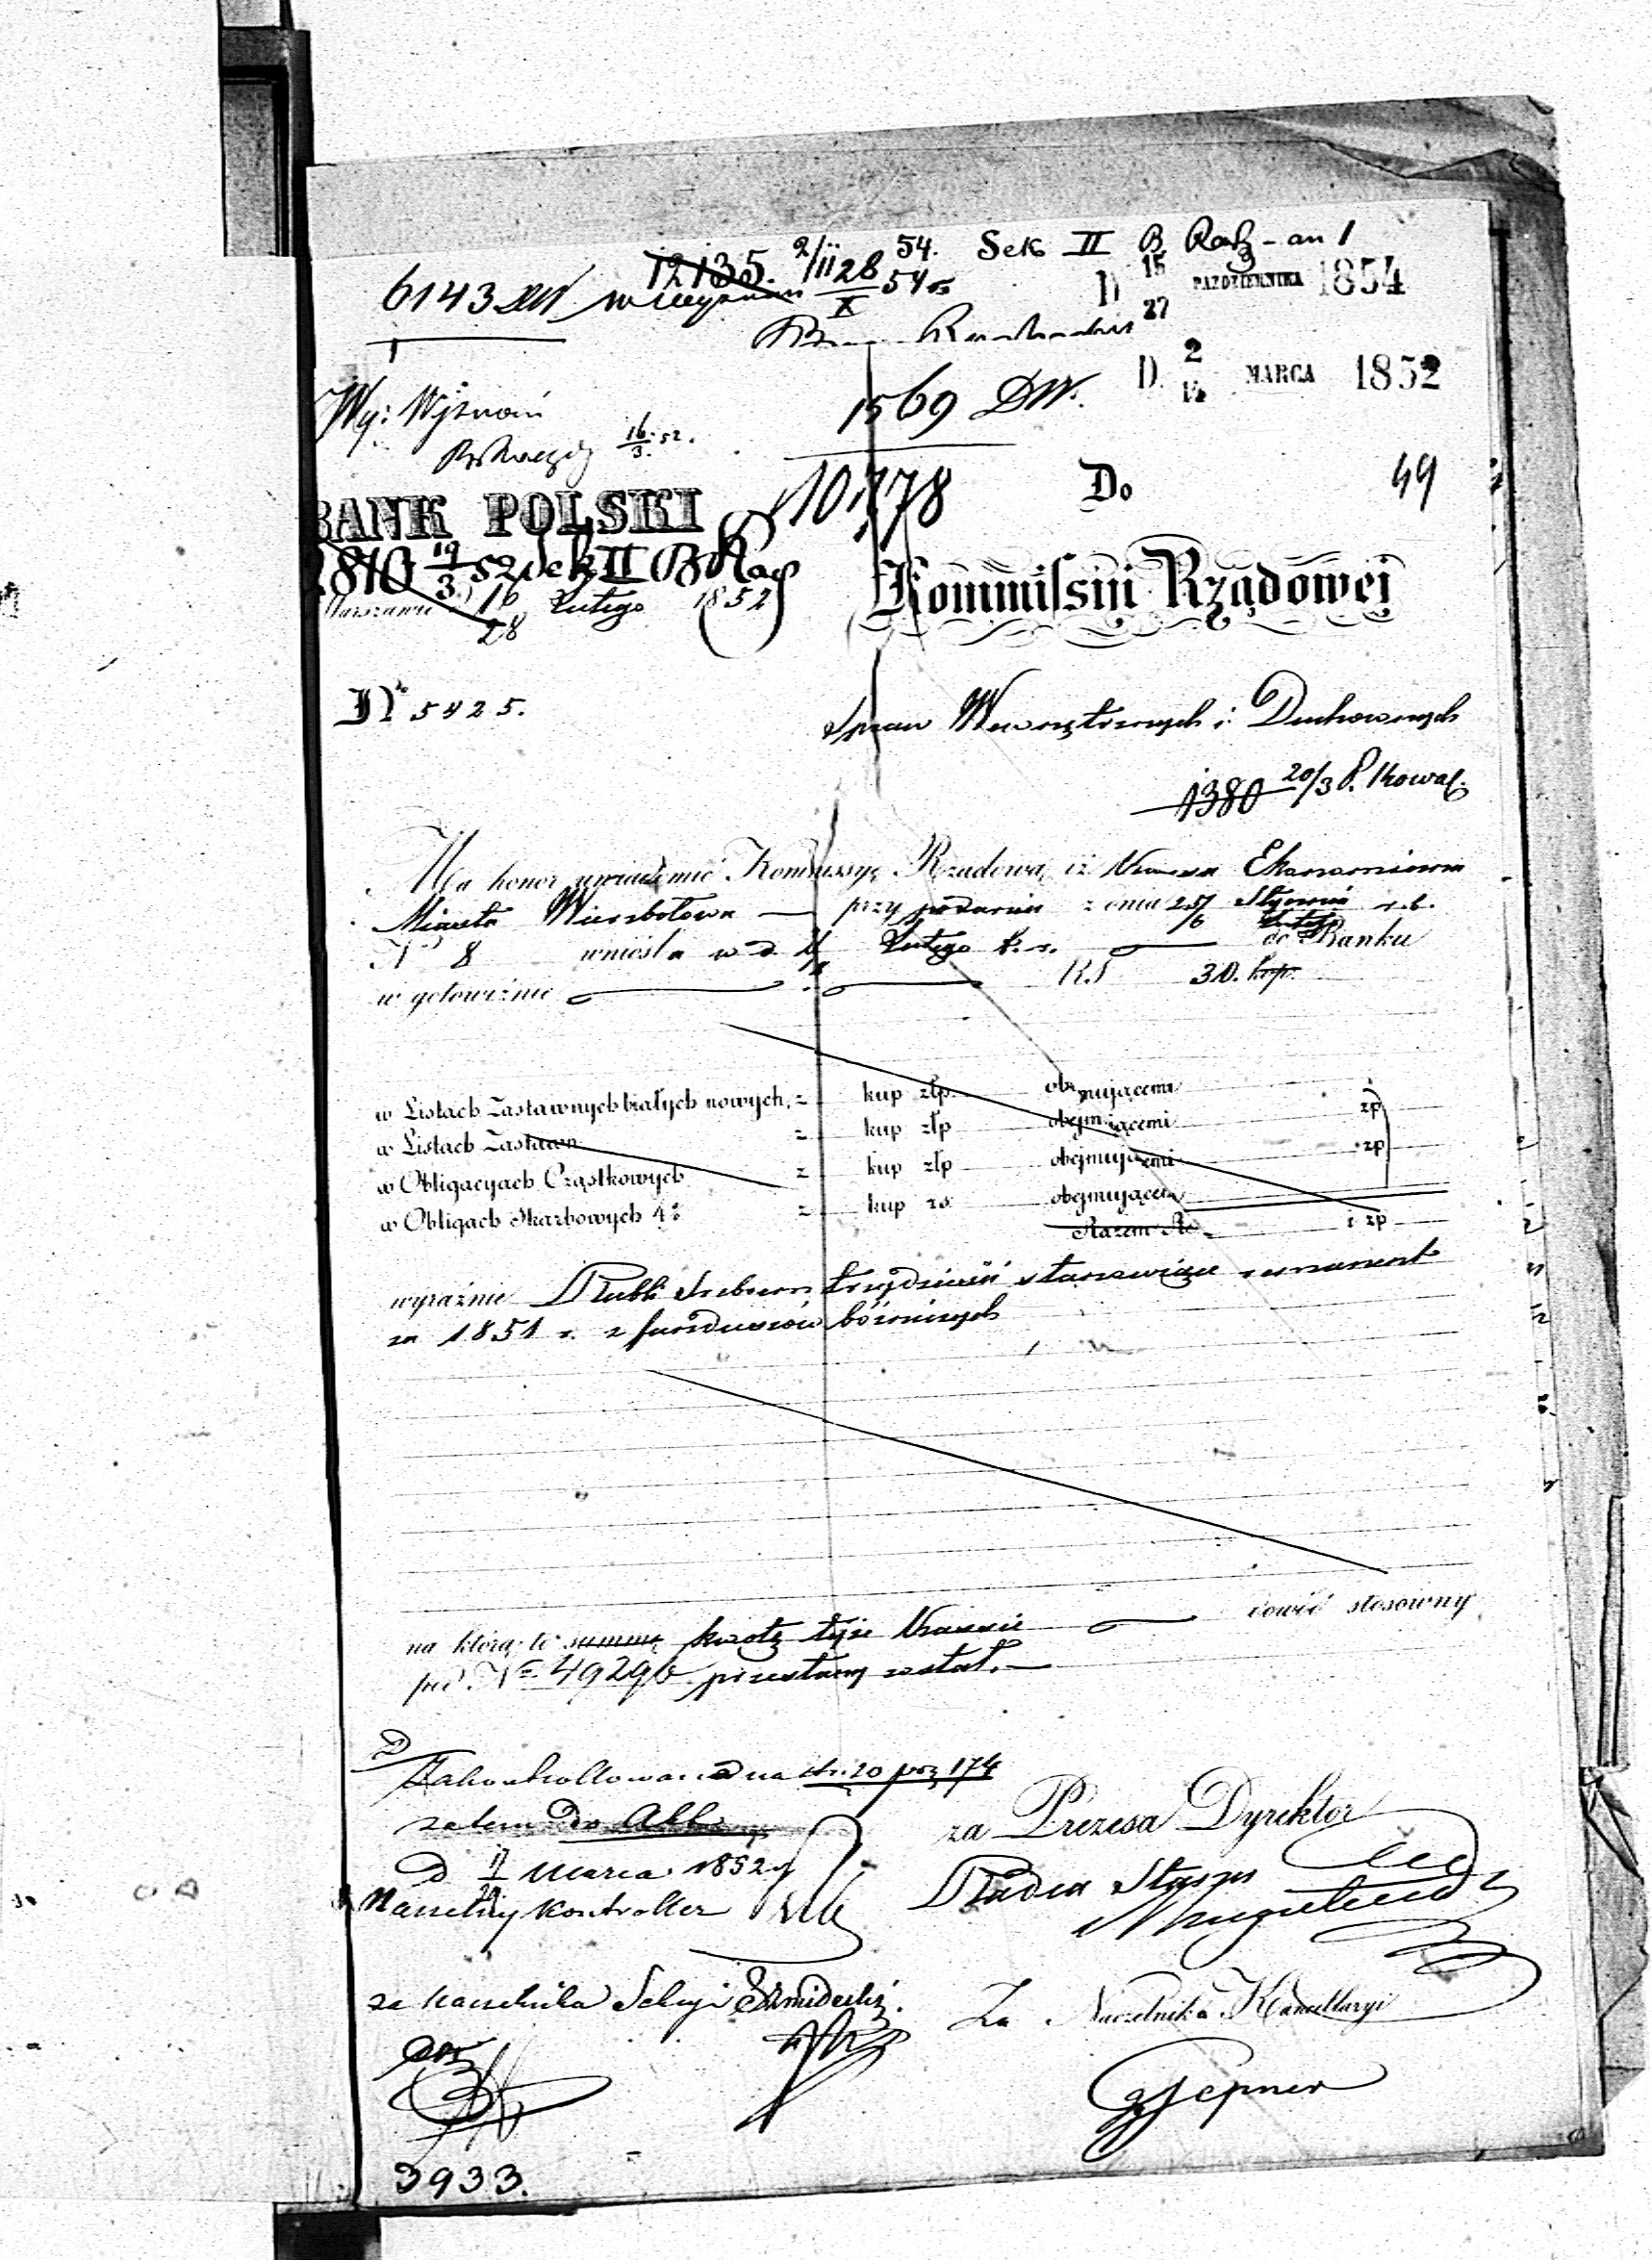 12135. 2/11 54. Sek II B Rach - an 1
6143 DW 28/X 54
D 15/27 PAZDZIERNIKA 1854
D. 2/14 MARCA 1852
Wy: Wyznań
16/3 52.
1569 DW.
BANK POLSKI
10,778
Do
49
1810 19/3 52 Sek II B Rach
Warszawie d. 16/28 Lutego 1852
Kommissyi Rządowej
No 5425.
Spraw Wewnętrznych i Duchownych
1380 20/3 P. Kowal.
Ma honor uwiadomić Kommissyę Rządową iż Kassa Ekonomiczna
Miasta Wierzbołowa — przy podaniu z dnia 25/6 Stycznia r. b.
N 8 wniosła w d Lutego b. r. do Banku
w gotowiźnie RS 30. kop.
w Listach Zastawnych białych nowych, z kup złp. obejmującemi zp
w Listach Zastawn z kup złp obejmującemi zp
w Obligacyach Cząstkowych z kup złp obejmującemi
w Obligach Skarbowych 4% z kup rs obejmującemi
Razem Rs i zp
wyraźnie Rubli Srebrem trzydzieści stanowiące remanent
za 1851 r. z funduszów bóżniczych
na którą to summę kwotę tejże Kassie dowód stosowny
pod No 49296 przesłany został. —
Zakontrollowano na str. 20 poz 174
zatem Do Akt
D Marca 1852
Naczelny Kontroller
za Prezesa Dyrektor
Radca Stanu
za Naczelnika Sekcyi
Za Naczelnika Kancellaryi
Gepner
3933.